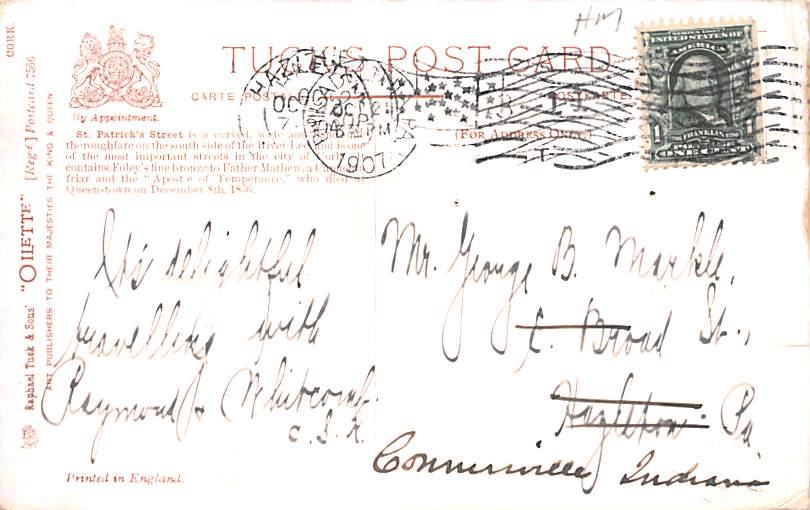 CORK.
[Regd.] Postcard 7566
Raphael Tuck & Sons' "OILETTE"
ART PUBLISHERS TO THEIR MAJESTIES THE KING & QUEEN
By Appointment.
TUCK'S POST CARD
CARTE POSTALE
POSTKARTE
(FOR ADDRESS ONLY.)
St. Patrick's Street is a curved, wide and
thoroughfare on the south side of the River Lee and is one
of the most important streets in the city of Cork
contains Foley's fine bronze to Father Mathew, a
friar and the "Apostle of Temperance," who died at
Queenstown on December 8th, 1856.
HAZLETON
OCT 21
PM
1907
SERIES 1902
UNITED STATES OF
AMERICA
FRANKLIN
1 POSTAGE 1
ONE CENT
It's delightful
travelling with
Raymond & Whitcomb.
C.S.K.
Mr. George B. Markle,
E. Broad St.,
Hazleton. Pa
Connersville Indiana
Printed in England.